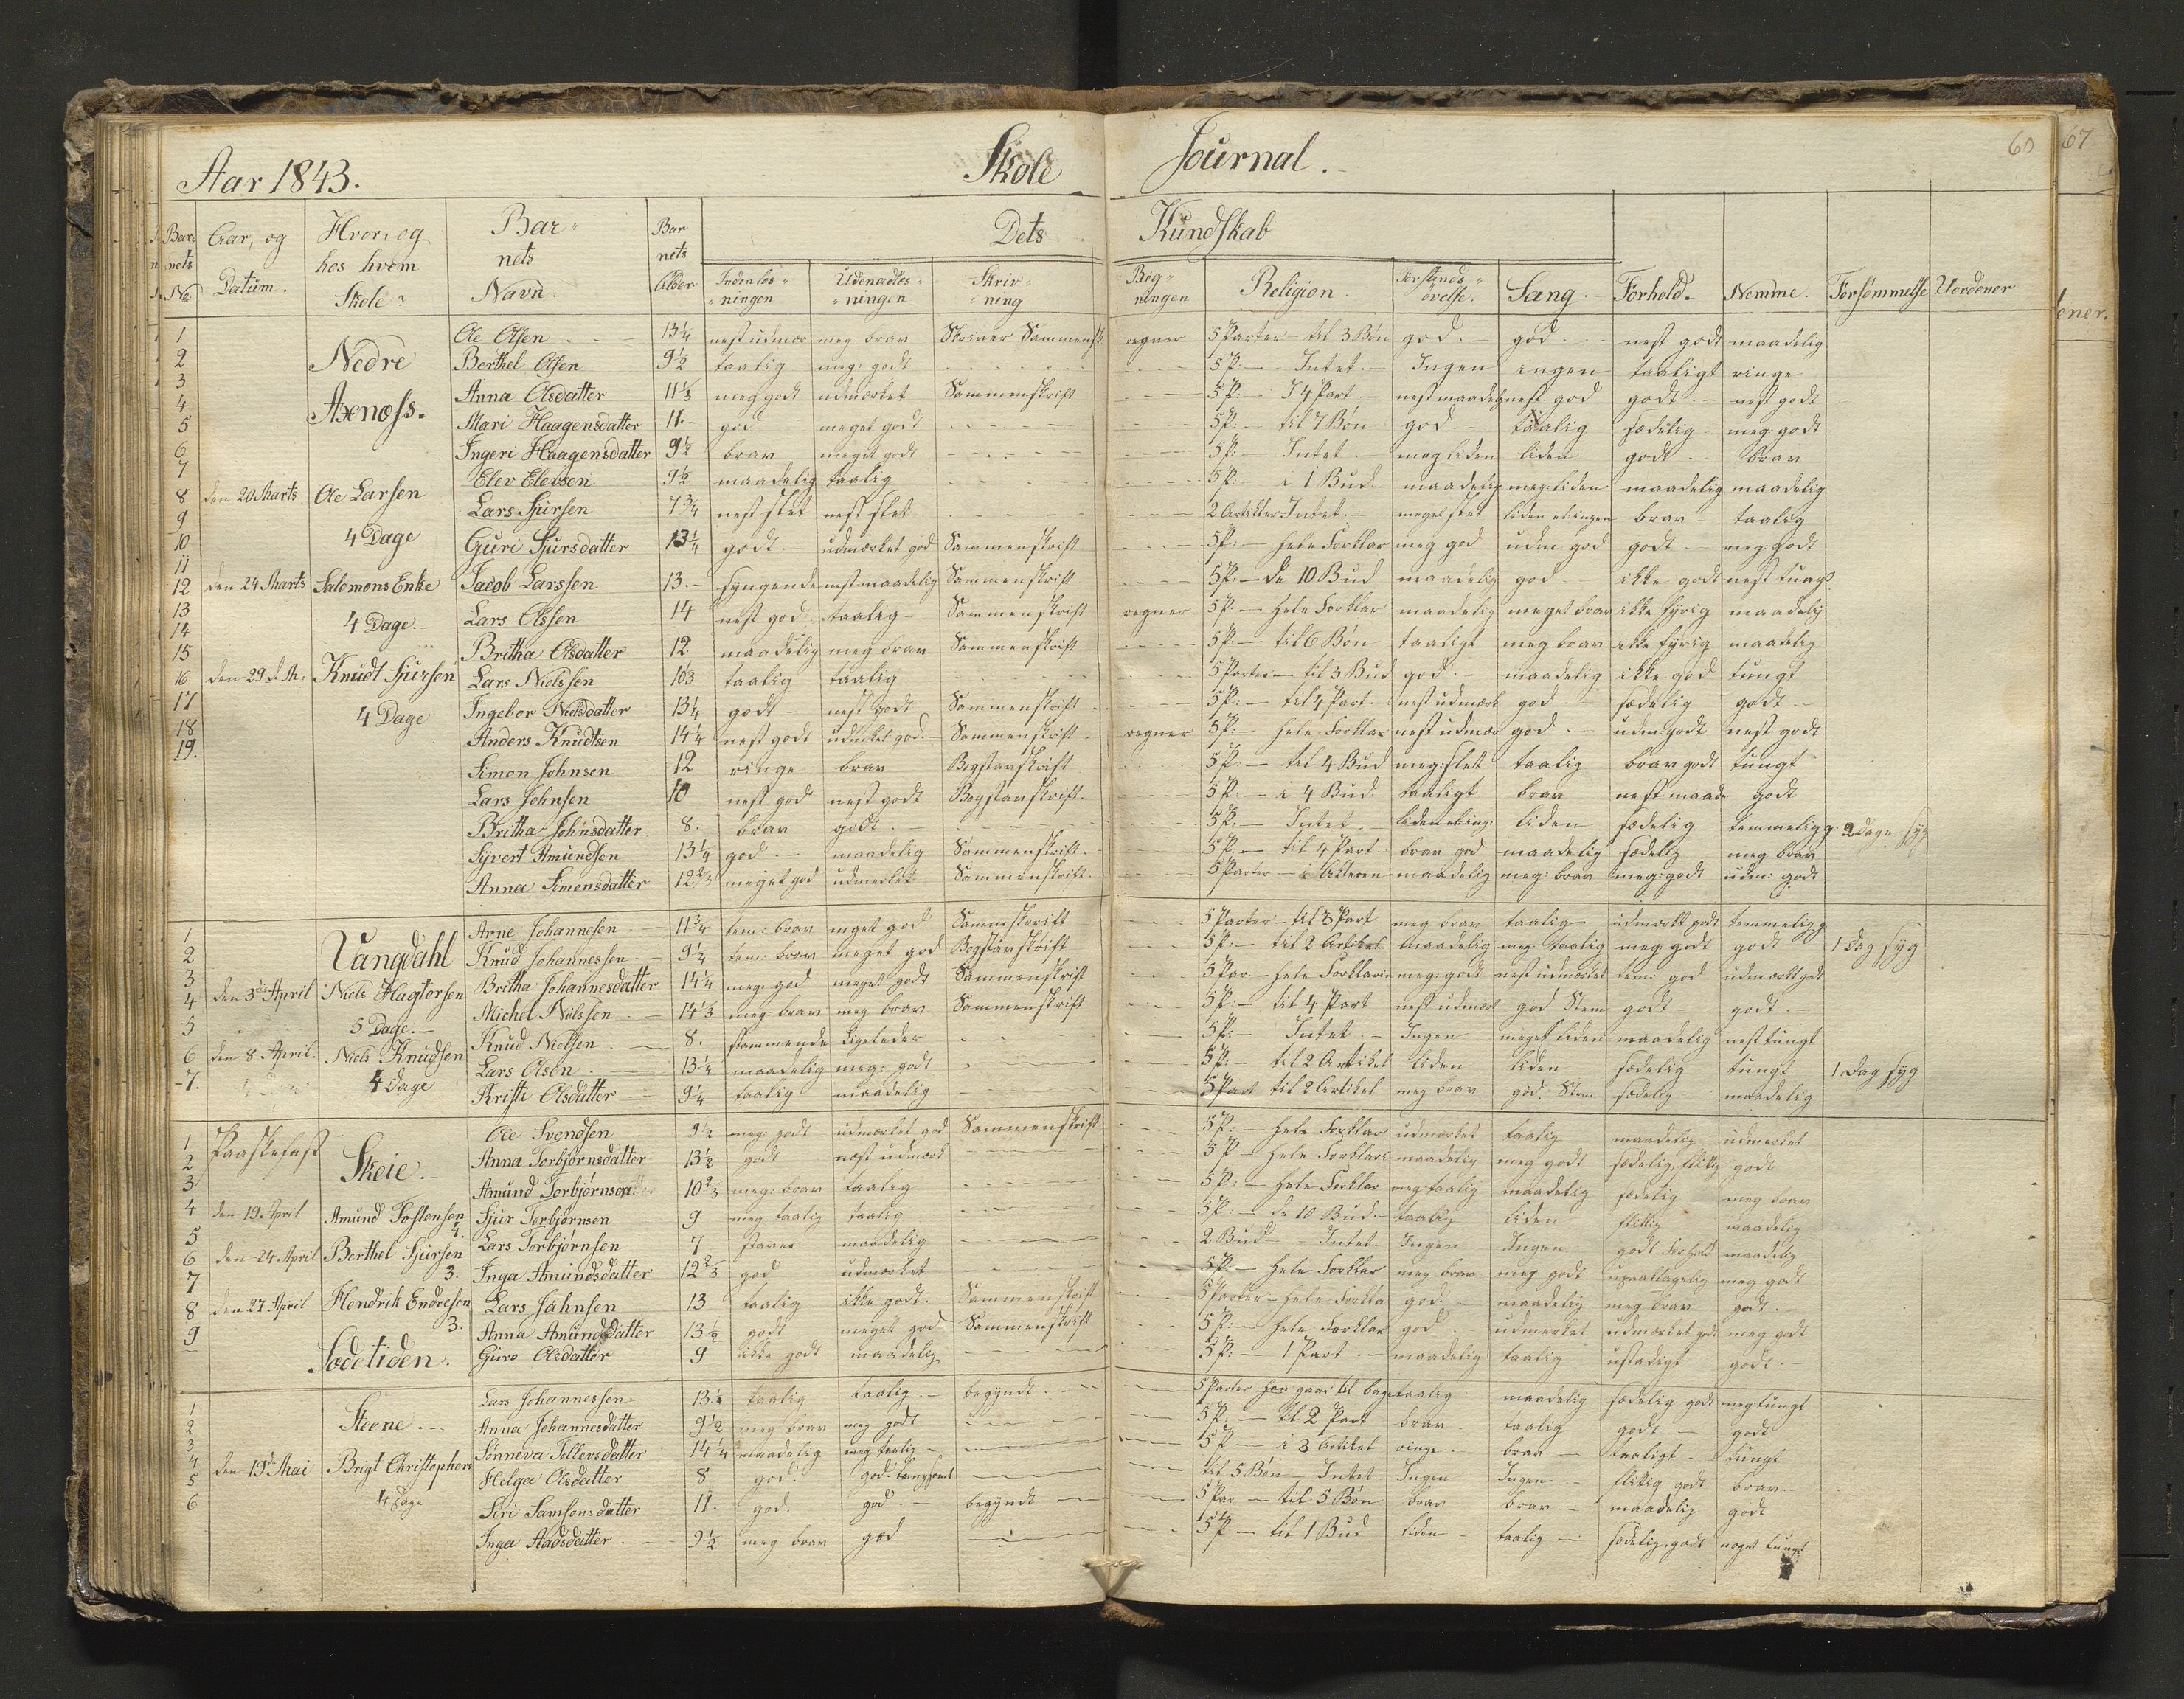 Aar 1843. Skole Journal. 60 67
Bar- nets No
Aar, og Datum.
Hvor, og hos hvem Skole?
Bar- nets Navn.
Bar nets Alder
Dets Kundskab
Indenlæs- ningen
Udenadlæs- ningen
Skriv- ning
Reg- ningen
Religion.
Forstands- øvelse.
Sang.
Forhold.
Nemme.
Forsømmelse
Uordener
Nedre Axenæss.
1 Ole Olsen 13¼ nest udmær meg brav Skriver Sammenskr. regner 5 Parter - til 3 Bøn god. god. nest godt maadelig
2 Berthel Olsen 9½ taalig meg: godt 5 P: - Intet. - Ingen ingen taaligt ringe
3 Anna Olsdatter 11⅓ meg godt udmærket Sammenskrift 5 P: - I 4 Part - nest maadeg nest god godt. - nest godt
4 Mari Haagensdatter 11. - god meget godt 5 P: - til 7 Bøn god. - taalig sædelig meg: godt
5 Ingeri Haagensdatter 9½ brav meget godt 5 P: - Intet. - meg liden liden godt brav
6 Elev Elevsen 9½ maadelig taalig 5 P: i 1 Bud maadelig meg: liden maadelig maadelig
7 Lars Sjursen 7¾ nest slet nest slet 2 Artikler Intet. - meget slet liden el: ingen brav taalig
8 den 20 Marts Ole Larsen
4 Dage Guri Sjursdatter 13¼ godt. - udmærket god Sammenskrift 5 P: - hele Forklar meg god udm god godt - meg: godt
9
10
11
12 den 24 Marts Salomons Enke Jacob Larssen 13. - syngende nest maadelig Sammenskrift 5 P: - de 10 Bud maadelig god ikke godt nest tungt
13 4 Dage. - Lars Olssen 14 nest god taalig Sammenskrift regner 5 P: - hele Forklar maadelig meget brav ikke fyrig maadelig
14
15 Britha Olsdatter 12 maadelig meg brav Sammenskrift 5 P: - til 6 Bøn taaligt meg brav ikke fyrig maadelig
16 den 29 d. M: Knudt Sjursen Lars Nielssen 10⅓ taalig taalig 5 Parter - til 3 Bud god. maadelig ikke god tungt
17 4 Dage Ingebor Nielsdatter 13¼ godt - nest godt Sammenskrift 5 P: - til 4 Part. - nest udmærk god. - sædelig godt -
18 Anders Knudtsen 14¼ nest godt udmerket god. - Sammenskrift regner 5 P: - hele Forklar nest udmær god. - udm godt nest godt
19. Simon Johnsen 12 ringe brav Bogstavskrift 5 P: - til 4 Bud meg: slet taalig brav godt tungt
Lars Johnsen 10 nest god nest godt Bogstavskrift. 5 P: - i 4 Bud. taaligt brav nest maade godt
Britha Johnsdatter 8. brav godt 5 P: - Intet liden el: ing: liden sædelig temmelig g. 2 Dage syg
Sjvert Amundsen 13¼ god. - maadelig Sammenskrift. 5 P: - til 4 Part. brav god maadelig sædelig meg brav
Anna Simensdatter 12⅔ meget god udmerket Sammenskrift 5 Parter - i Alteren maadelig meg: brav meg: godt udm: godt
Vangdahl
1 Arne Johannesen 11¾ tem: brav meget god Sammenskrift 5 Parter - til 3 Part meg brav taalig udmærkt godt temmelig g
2 Knud Johannessen - 9¼ tem: brav meget god Bogstavskrift 5 P: - til 2 Artikel maadelig meg: taalig meg: godt godt 1 Dag syg
3 Britha Johannesdatter 14¼ meg: god meget godt Sammenskrift 5 Par - hele Forklarin meg: godt nest udmerket tem: god udmærkt godt
4 den 3die April Niels Hagtorsen Michel Nielssen 14⅓ meg: brav meg brav Sammenskrift 5 P: - til 4 Part nest udmær god Stem godt godt. -
5 5 Dage. - Knud Nielsen 8. stammende Ligeledes 5 P: - Intet - Ingen meget liden maadelig nest tungt
6 den 8 April. Niels Knudsen Lars Olsen 13¼ maadelig meg: godt 5 P: - til 2 Artikel liden liden sædelig tungt 1 Dag syg
7. 4 Dage Kristi Olsdatter 9¼ taalig maadelig 5 Part til 2 Artikel meg brav god. Stem sædelig maadelig
Paaskefest Skeie. -
1 Ole Svendsen 9½ meg: godt udmærket god Sammenskrift 5 P: - hele Forklar udmerket taalig maadelig udmerket
2 Anna Torbjørnsdatter 13½ godt næst udmerk 5 P - hele Forklari maadelig meg godt sædelig, flittig godt
3 Amund Torbjørnson 10⅔ meg: brav taalig 5 P: - hele Forklar meg: taalig maadelig sædelig meg brav
4 den 19 April Amund Tostensen 4. Sjur Torbjørnsen 9 meg taalig taalig 5 P: - de 10 Bud. - taalig liden flittig maadelig
5 Lars Torbjørnsen 7 staver maadelig 2 Bud - Intet. Ingen Ingen godt Forhold maadelig
6 den 24 April Berthel Sjursen 3. Inga Amundsdatter 12⅔ god udmærket 5 P. - hele Forklar meg brav meg godt upaaklagelig meg godt
7 Lars Jahnsen 13 taalig ikke godt. Sammenskrift 5 Parter - hele Forkla god. maadelig meg brav godt. -
8 den 27 April Hendrik Endresen 3. Anna Amundsdatter 13½ godt meget god Sammenskrift 5 P: - hele Forklar god udmerket udmærket godt meg godt
9 Sædetiden. Guro Olsdatter 9 ikke godt maadelig 5 P: - 1 Part. - maadelig taalig ustadigt godt. -
Steene. -
1 Lars Johannessen 13¼ taalig taalig. - begyndt. 5 Parter han gaar til bage taalig maadelig sædelig godt meg: tungt
2 Anna Johannesdatter 9½ meg brav meg godt 5 P: - til 2 Part brav taalig godt - godt
3 Sønneva Tollevsdatter 14¼ maadelig meg taalig. - 5 P - i 3 Artikel ringe brav taaligt. tungt
4
5 den 19de Mai Brigt Christophers Helga Olsdatter 8 god. god. langsomt til 5 Bøn - Intet Ingen Ingen flittig godt brav. -
6 4 Dage Siri Samsonsdatter 11. god. god. - begyndt 5 Par - til 5 Bøn brav brav. - maadelig godt
Inga Aadsdatter. 9½ meg brav god 5 P - til 1 Bud liden taalig sædelig, godt noget tungt